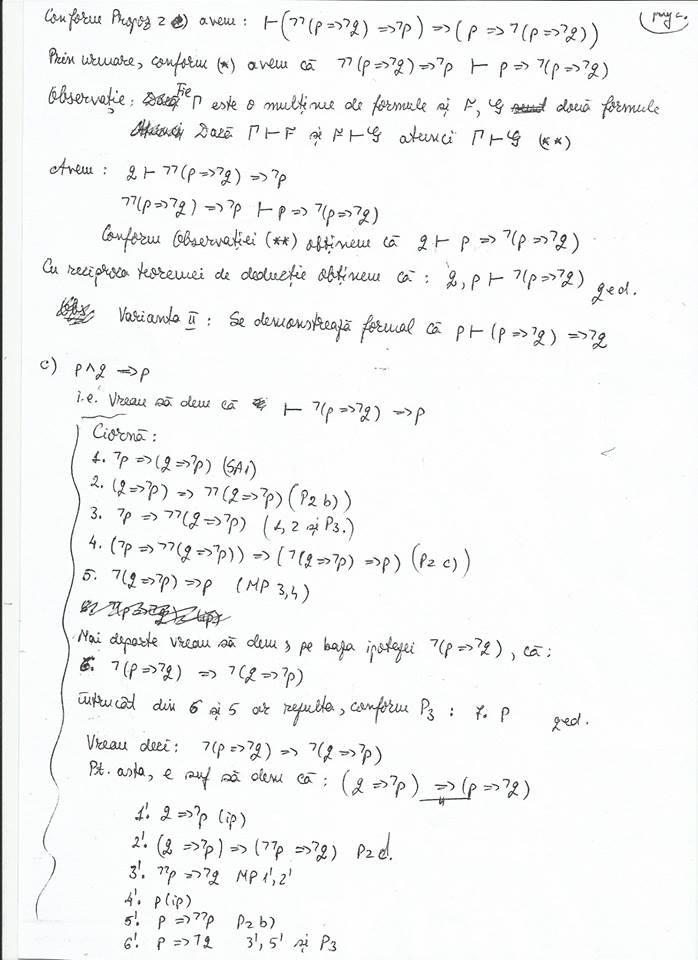 Conform Propoz 2 e) avem: ⊢(⌉⌉(p=>⌉q)=>⌉p)=>(p=>⌉(p=>⌉q))
Prin urmare, conform (*) avem că ⌉⌉(p=>⌉q)=>⌉p ⊢ p=>⌉(p=>⌉q)
Observație: Fie Γ este o mulțime de formule și F, G două formule
Dacă Γ⊢F și F⊢G atunci Γ⊢G (**)
Avem: q ⊢ ⌉⌉(p=>⌉q)=>⌉p
⌉⌉(p=>⌉q)=>⌉p ⊢ p=>⌉(p=>⌉q)
Conform Observației (**) obținem că q ⊢ p=>⌉(p=>⌉q)
Cu reciproca teoremei de deducție obținem că: q, p ⊢ ⌉(p=>⌉q) qed.
Varianta II: Se demonstrează formal că p⊢(p=>⌉q)=>⌉q
c) p∧q=>p
i.e. Vreau să dem că ⊢ ⌉(p=>⌉q)=>p
Ciornă:
1. ⌉p=>(q=>⌉p) (SA1)
2. (q=>⌉p)=>⌉⌉(q=>⌉p) (P2 b)
3. ⌉p=>⌉⌉(q=>⌉p) (1, 2 și P3.)
4. (⌉p=>⌉⌉(q=>⌉p))=>(⌉(q=>⌉p)=>p) (P2 c)
5. ⌉(q=>⌉p)=>p (MP 3,4)
Mai departe vreau să dem, pe baza ipotezei ⌉(p=>⌉q), că:
6. ⌉(p=>⌉q)=>⌉(q=>⌉p)
întrucât din 6 și 5 ar rezulta, conform P3: 7. p qed.
Vreau deci: ⌉(p=>⌉q)=>⌉(q=>⌉p)
Pt. asta, e suf să dem că: (q=>⌉p)=>(p=>⌉q)
1'. q=>⌉p (ip)
2'. (q=>⌉p)=>(⌉⌉p=>⌉q) P2 d.
3'. ⌉⌉p=>⌉q MP 1',2'
4'. p(ip)
5'. p=>⌉⌉p P2 b)
6'. p=>⌉q 3', 5' și P3